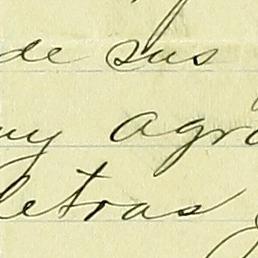 de sus
uy agra
letras